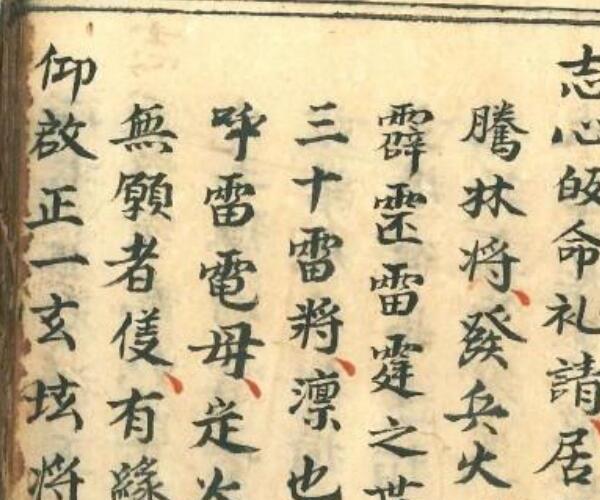 志心皈命礼請居
騰林将發兵火
霹靂雷霆之
三十雷將凛也
呼雷電母定
無願者俴有緣
仰啟正一玄坛将